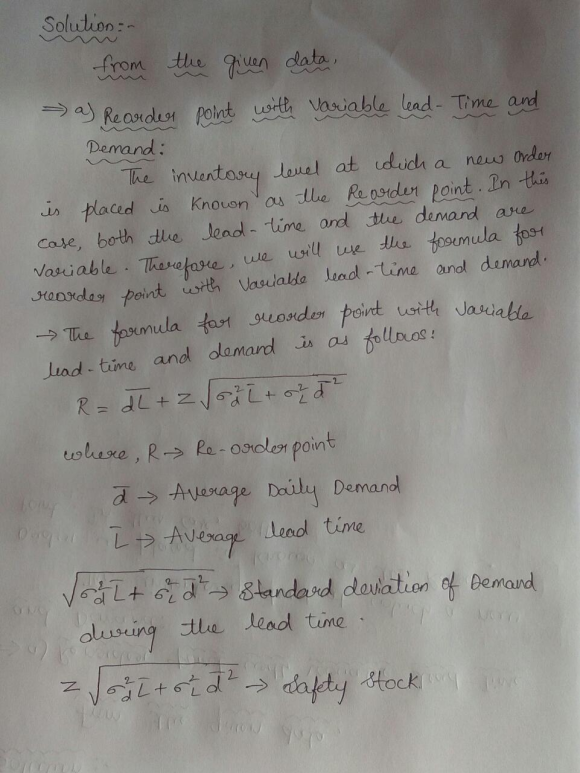 Solution:-
from the given data.
⇒ a) Reorder point with variable lead-Time and
Demand:
The inventory level at which a new order
is placed is known as the Reorder point. In this
case, both the lead-time and the demand are
variable. Therefore, we will use the formula for
reorder point with variable lead-time and demand.
→ The formula for reorder point with variable
lead-time and demand is as follows:
R = d̅L̅ + Z √(σ_d² L̅ + σ_L² d̅²)
where, R → Re-order point
d̅ → Average Daily Demand
L̅ → Average lead time
√(σ_d² L̅ + σ_L² d̅²) → Standard deviation of Demand
during the lead time.
Z √(σ_d² L̅ + σ_L² d̅²) → Safety Stock